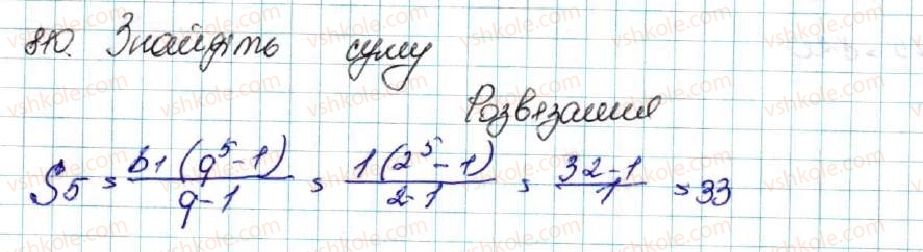 810. Знайдіть суму
Розвязання
S5 = b1(q^5-1)/q-1 = 1(2^5-1)/2-1 = 32-1/1 = 33